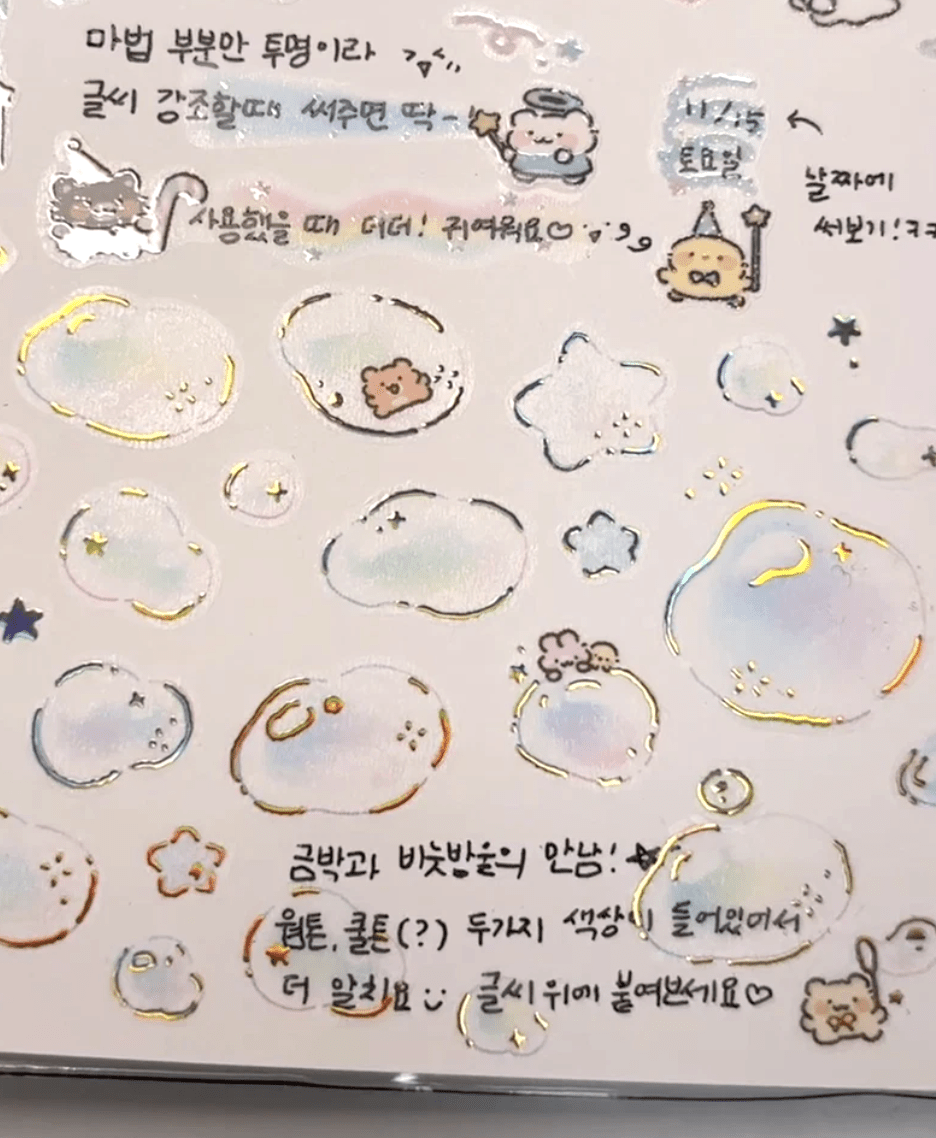 마법 부분만 투명이라
글씨 강조할때 써주면 딱-
11/15
토요일
날짜에
써보기!ㅋㅋ
사용했을 때 더더! 귀여워요♡
금박과 비눗방울의 만남!
웜톤, 쿨톤(?) 두가지 색상이 들어있어서
더 알차요 글씨 위에 붙여보세요♡